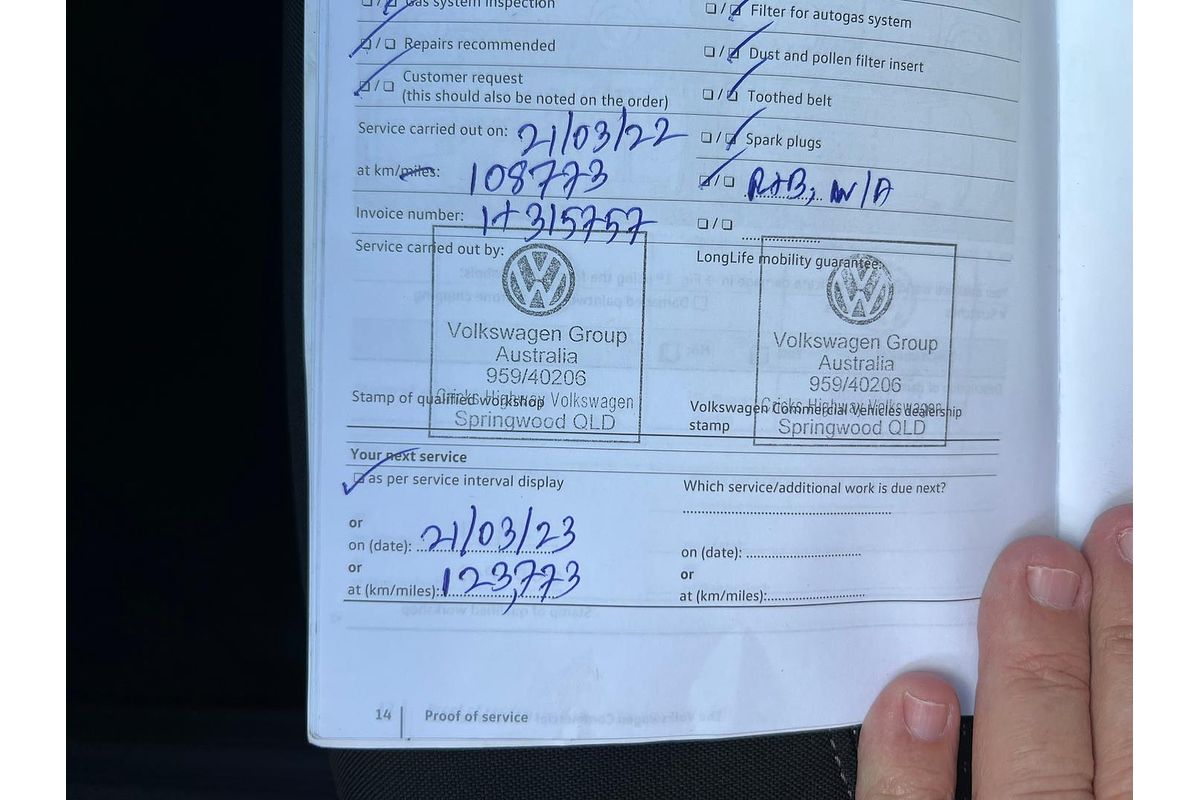 Gas system inspection
Repairs recommended
Customer request
(this should also be noted on the order)
Service carried out on: 21/03/22
at km/miles: 108773
Invoice number: 1+315757
Service carried out by:
Volkswagen Group
Australia
959/40206
Cricks Highway Volkswagen
Springwood QLD
Stamp of qualified workshop
Filter for autogas system
Dust and pollen filter insert
Toothed belt
Spark plugs
R+B; W/A
LongLife mobility guarantee:
Volkswagen Group
Australia
959/40206
Cricks Highway Volkswagen
Springwood QLD
Volkswagen Commercial Vehicles dealership
stamp
Your next service
as per service interval display
or
on (date): 21/03/23
or
at (km/miles): 123,773
Which service/additional work is due next?
on (date):
or
at (km/miles):
14 Proof of service